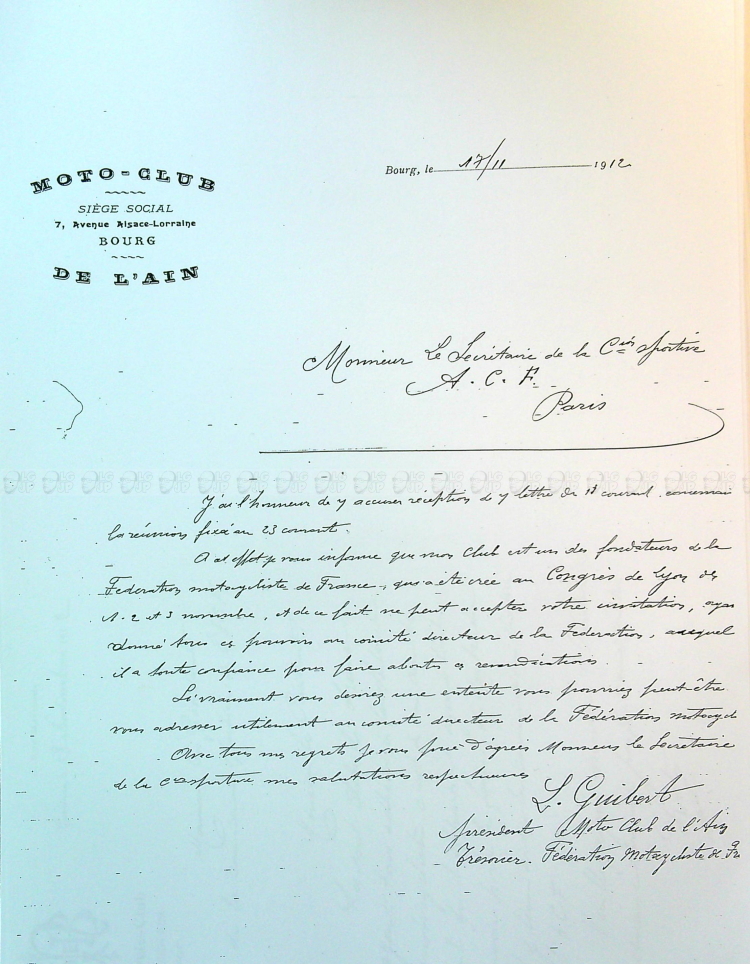 MOTO-CLUB
SIÈGE SOCIAL
7, Avenue Alsace-Lorraine
BOURG
DE L'AIN
Bourg, le 17/11 1912
Monsieur Le Secrétaire de la Cion sportive
A. C. F.
Paris
J'ai l'honneur de v/ accuser réception de v/ lettre du courant concernant
la réunion fixée au 23 courant.
A cet effet je vous informe que mon Club est un des fondateurs de la
Federation motocycliste de France, qui a été créé au Congrès de Lyon des
1. 2 et 3 novembre, et de ce fait ne peut accepter votre invitation, ayan
donné tous ces pouvoirs au comité directeur de la Federation, auquel
il a toute confiance pour faire aboutir ces revendications.
Si vraiment vous desirez une entente vous pourriez peut-être
vous adresser utilement au comité directeur de la Fédération motocycl
Avec tous mes regrets je vous prie d'agréer Monsieur le Secrétaire
de la Cion sportive mes salutations respectueuses
L. Guibert
président Moto Club de l'Ain
Trésorier Fédération Motocycliste de Fr